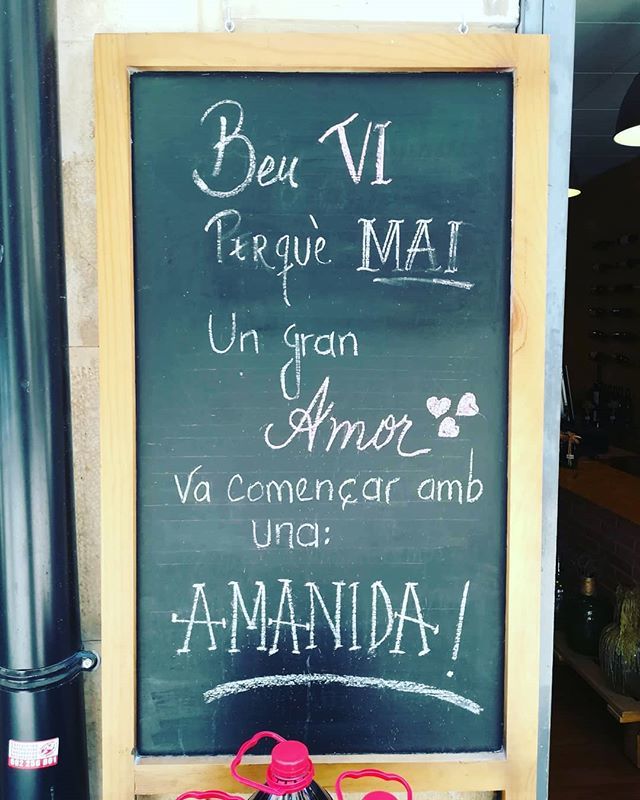 Beu VI
PERquè MAI
Un gran
Amor
Va començar amb
una:
AMANIDA!